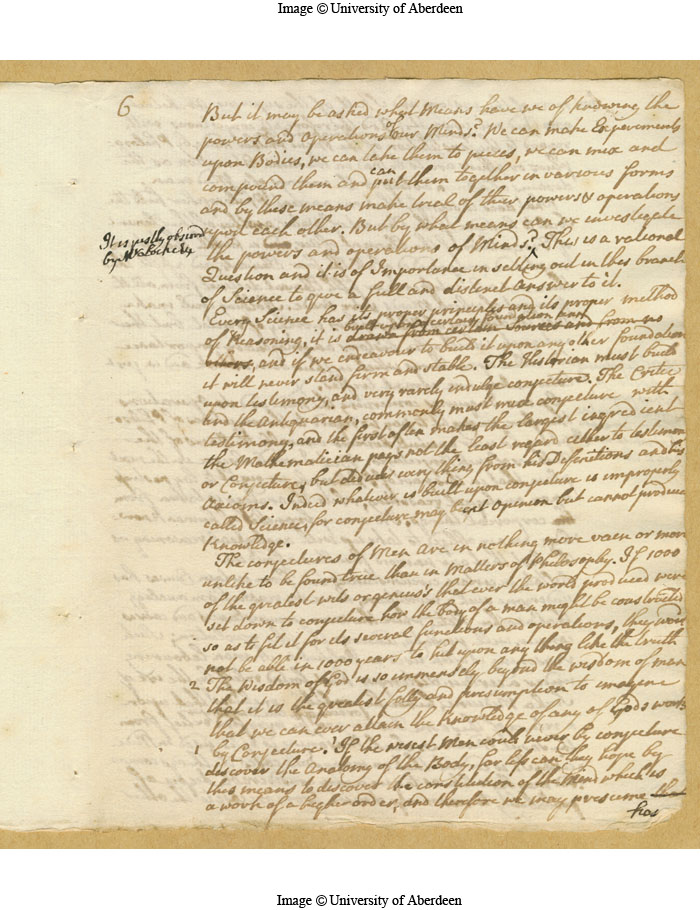 Image © University of Aberdeen
6
But it may be asked what Means have we of knowing the
powers and operations of our Minds? We can make Experiments
upon Bodies, we can take them to pieces, we can mix and
compound them and can put them together in various forms
and by these means make trial of their powers & operations
upon each other. But by what means can we investigate
It is justly observd
by Mr Locke &c
the powers and operations of Minds? This is a rational
Question and it is of Importance in setting out in this branch
of Science to give a full and distinct answer to it.
Every Science has its proper principles and its proper method
of Reasoning, it is built upon a certain foundation
drawn from certain sources and from no
others, and if we endeavour to build it upon any other foundation
it will never stand firm and stable. The Historian must build
upon testimony, and very rarely indulge conjecture. The Critic
and the Antiquarian, commonly must mix conjecture with
testimony, and the first often makes the largest ingredient
the Mathematician pays not the least regard either to testimony
or Conjecture, but deduces every thing from his Definitions and his
Axioms. Indeed whatever is built upon conjecture is improperly
called Science, for conjecture may beget opinion but cannot produce
Knowledge.
The conjectures of Men are in nothing more vain or more
unlike to be found true than in Matters of Philosophy. If 1000
of the greatest wits or genius's that ever the world produced were
set down to conjecture how the body of a man might be constructed
so as to fit it for its several functions and operations, they would
not be able in 1000 years to hit upon any thing like the truth
2 The Wisdom of God is so immensely beyond the wisdom of man
that it is the greatest folly and presumption to imagine
that we can ever attain the Knowledge of any of Gods works
1 by Conjecture. 1 If the wisest Man could never by conjecture
discover the Anatomy of the Body, far less can they hope by
this means to discover the constitution of the Mind which is
a work of a higher order, and therefore we may presume
has
Image © University of Aberdeen